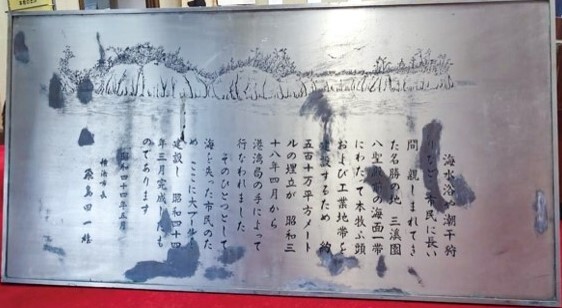 海水浴や潮干狩
りなど 市民に長い
間 親しまれてき
た名勝の地 三溪園
八聖殿 の海面一帯
にわたて本牧ふ頭
および工業地帯を
建設するため 約
五百十万平方メート
ルの埋立が 昭和三
十八年四月から
港湾局の手によって
行なわれました
そのひとつとして
海を失った市民のた
め ここに大プール
建設し 昭和四十四
年三月完成したも
のであります
昭和四十四年五月
横浜市長
飛鳥田一雄